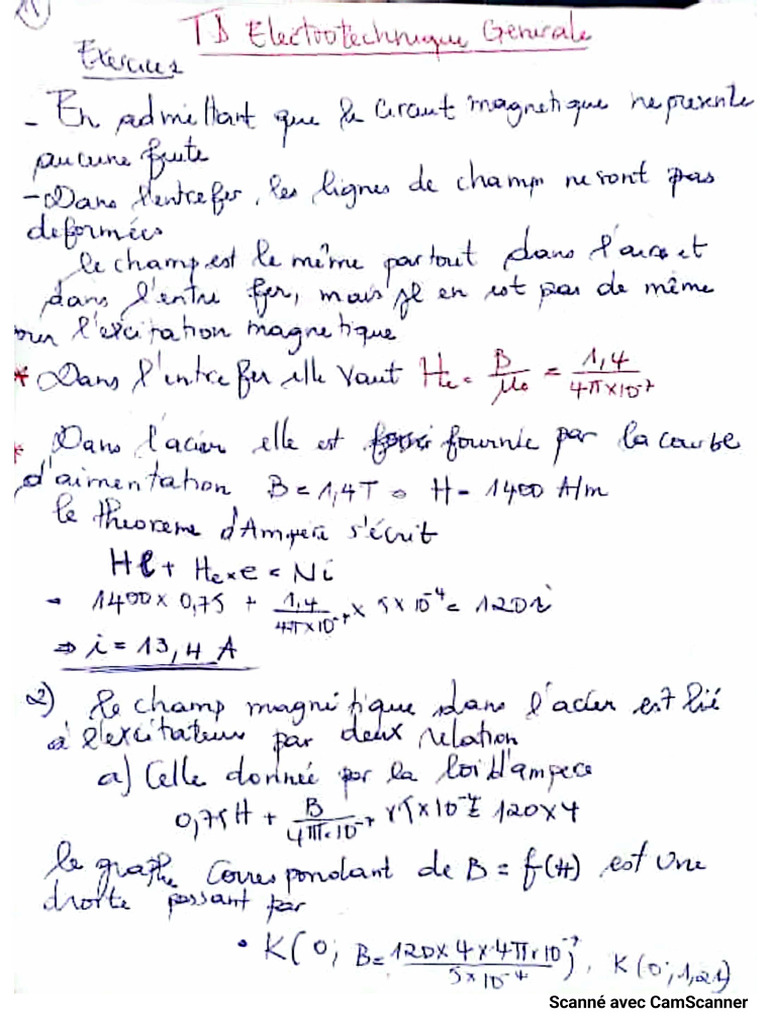 1
TD Electrotechnique Generale
Exercice 1
- En admettant que le circuit magnetique ne presente
aucune fuite
- Dans l'entrefer, les lignes de champ ne sont pas
deformées
le champ est le même partout dans l'acier et
dans l'entre fer, mais il en est pas de même
pour l'excitation magnetique
* Dans l'entrefer elle vaut He = B/μ0 = 1,4/4π×10^-7
* Dans l'acier elle est fournie par la courbe
d'aimentation B = 1,4T → H = 1400 A/m
le theoreme d'Ampere s'écrit
Hl + He×e = Ni
- 1400 × 0,75 + 1,4/4π×10^-7 × 5×10^-4 = 120i
⇒ i = 13,4 A
2) le champ magnétique dans l'acier est lié
à l'excitateur par deux relation
a) Celle donnée par la loi d'ampere
0,75H + B/4π×10^-7 × 5×10^-4 = 120×4
le graphe Correspondant de B = f(H) est une
droite passant par
• K(0; B = 120×4×4π×10^-7/5×10^-4), K(0; 1,21)
Scanné avec CamScanner